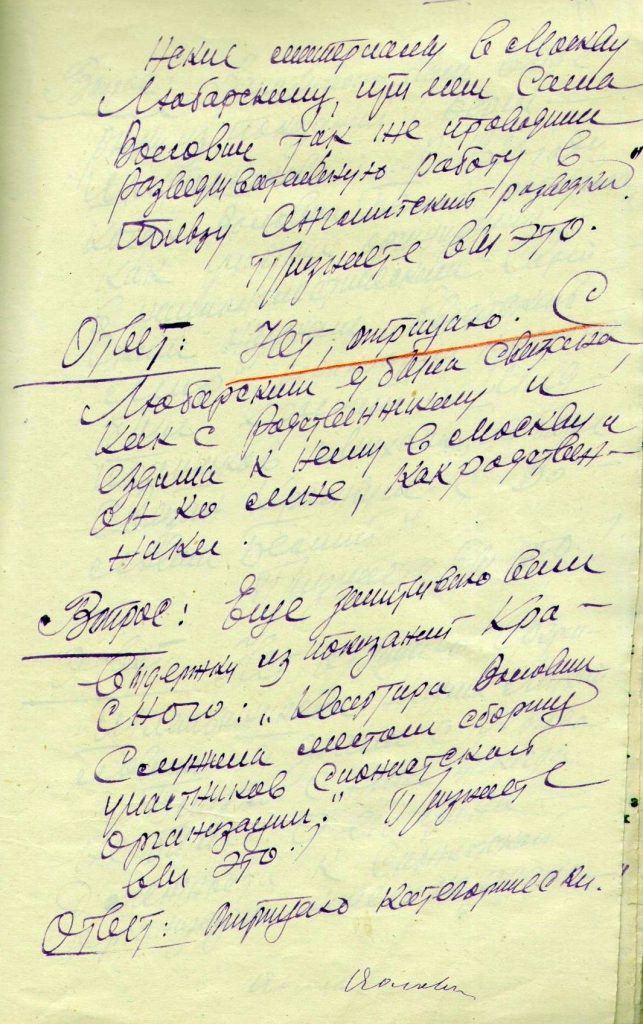 ския материалы в Москву
Любарскому, при чем сама
Волович так же проводила
разведывательную работу в
пользу Английской разведки".
Признаете вы это.
Ответ: Нет, отрицаю. С
Любарским я была связана,
как с родственником и
ездила к нему в Москву и
он ко мне, как родствен-
ники.
Вопрос: Еще зачитываю вам
выдержку из показаний Кра-
сного: „Квартира Волович
служила местом сборищ
участников Сионистской
организации." Признаете
вы это.
Ответ: отрицаю категорически.